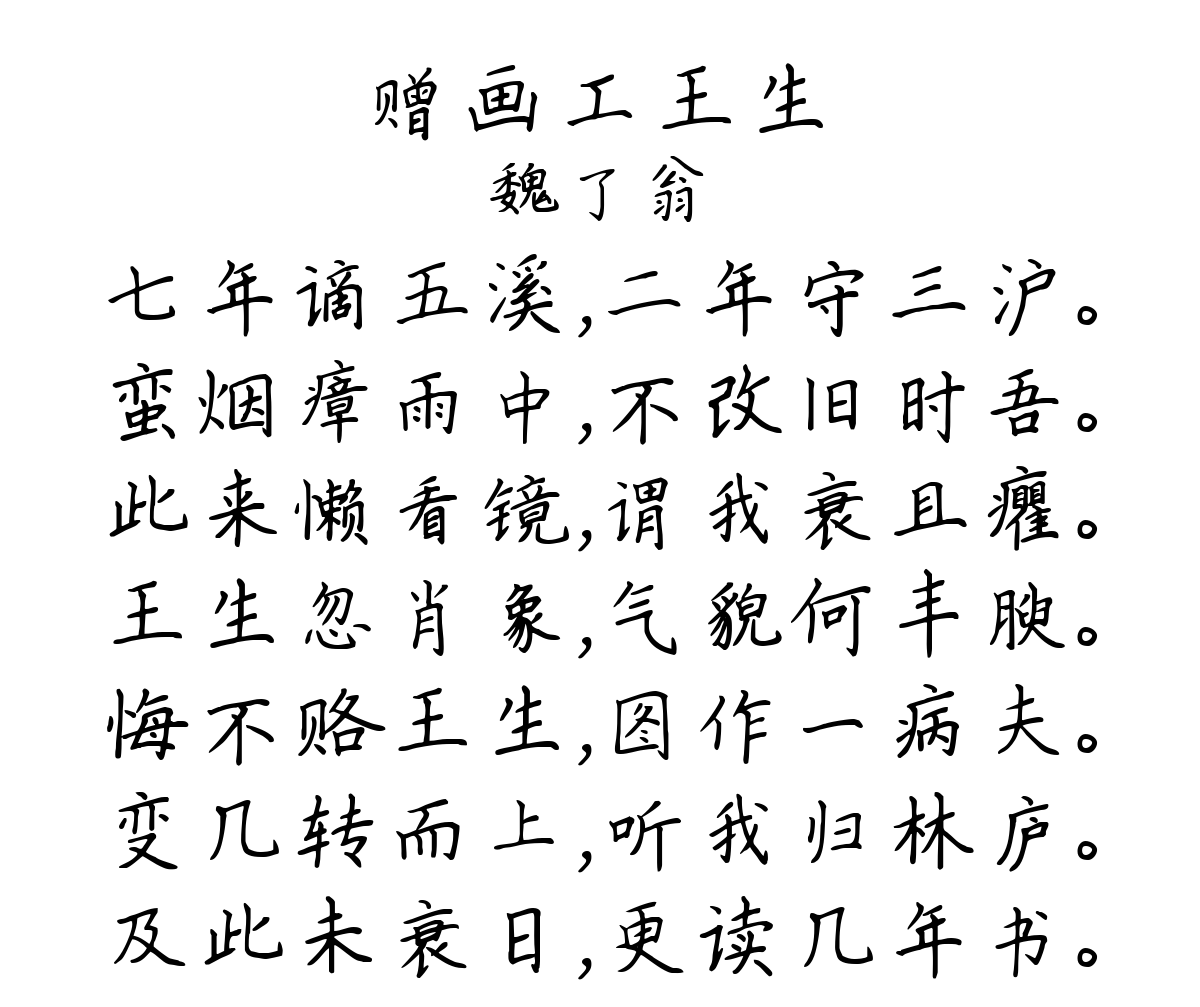 赠画工王生
魏了翁
七年谪五溪,二年守三沪。
蛮烟瘴雨中,不改旧时吾。
此来懒看镜,谓我衰且癯。
王生忽肖象,气貌何丰腴。
悔不赂王生,图作一病夫。
变几转而上,听我归林庐。
及此未衰日,更读几年书。